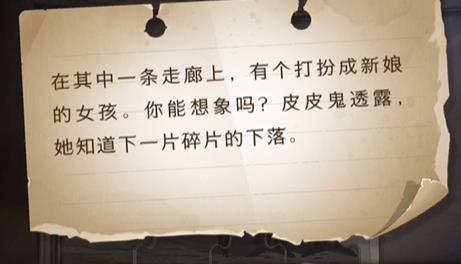 在其中一条走廊上，有个打扮成新娘
的女孩。你能想象吗？皮皮鬼透露，
她知道下一片碎片的下落。